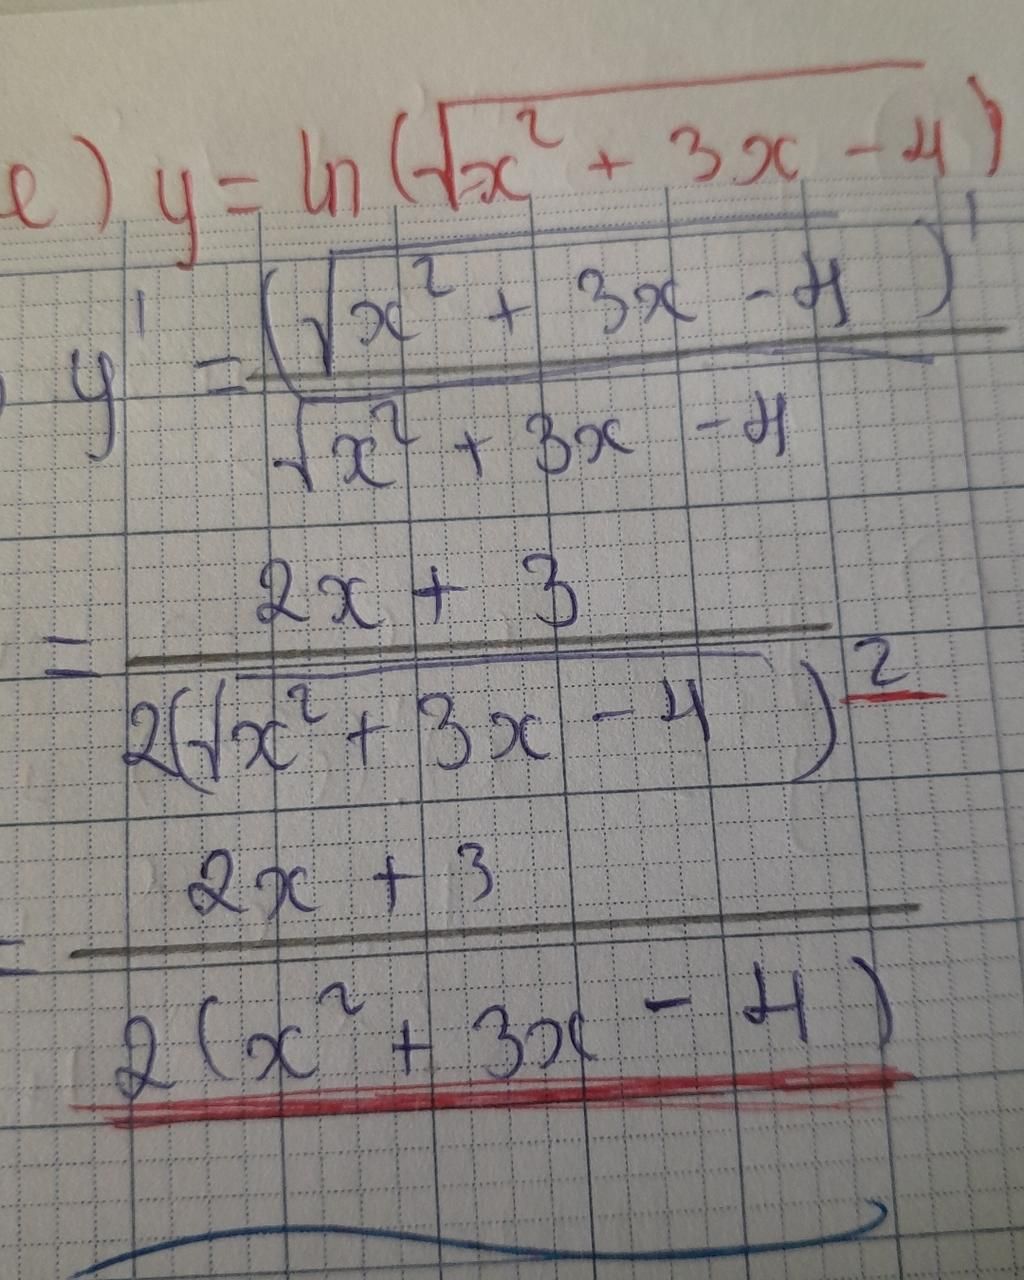 e) y = ln(√x² + 3x - 4)
y' = (√x² + 3x - 4)' / √x² + 3x - 4
= 2x + 3 / 2(√x² + 3x - 4)²
= 2x + 3 / 2(x² + 3x - 4)